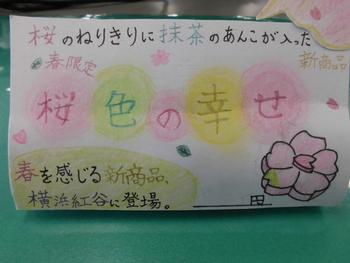 桜のねりきりに抹茶のあんこが入った
春限定
新商品
桜色の幸せ
春を感じる新商品、
横浜紅谷に登場。
円